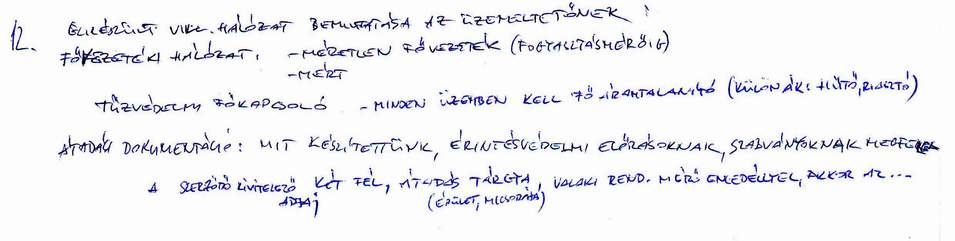 12. ELKÉSZÜLT VILL. HÁLÓZAT BEMUTATÁSA AZ ÜZEMELTETŐNEK:
FŐVEZETÉKI HÁLÓZAT: - MÉRETLEN FŐVEZETÉK (FOGYASZTÁSMÉRŐIG)
- MÉRT
TŰZVÉDELMI FŐKAPCSOLÓ - MINDEN ÜZEMBEN KELL FŐ-ÁRAMTALANÍTÓ (KÜLÖN ÁKI: HŰTŐ, RIASZTÓ)
ÁTADÁSI DOKUMENTÁCIÓ: MIT KÉSZÍTETTÜNK, ÉRINTÉSVÉDELMI ELŐÍRÁSOKNAK, SZABVÁNYOKNAK MEGFELEL
A SZERZŐDŐ KIVITELEZŐ KÉT FÉL, ÁTADÁS TÁRGYA, VALAKI REND. MÉRŐ ENGEDÉLLYEL, AKKOR AZ ...
ADATAI (ÉPÜLET, MICSODÁJA)